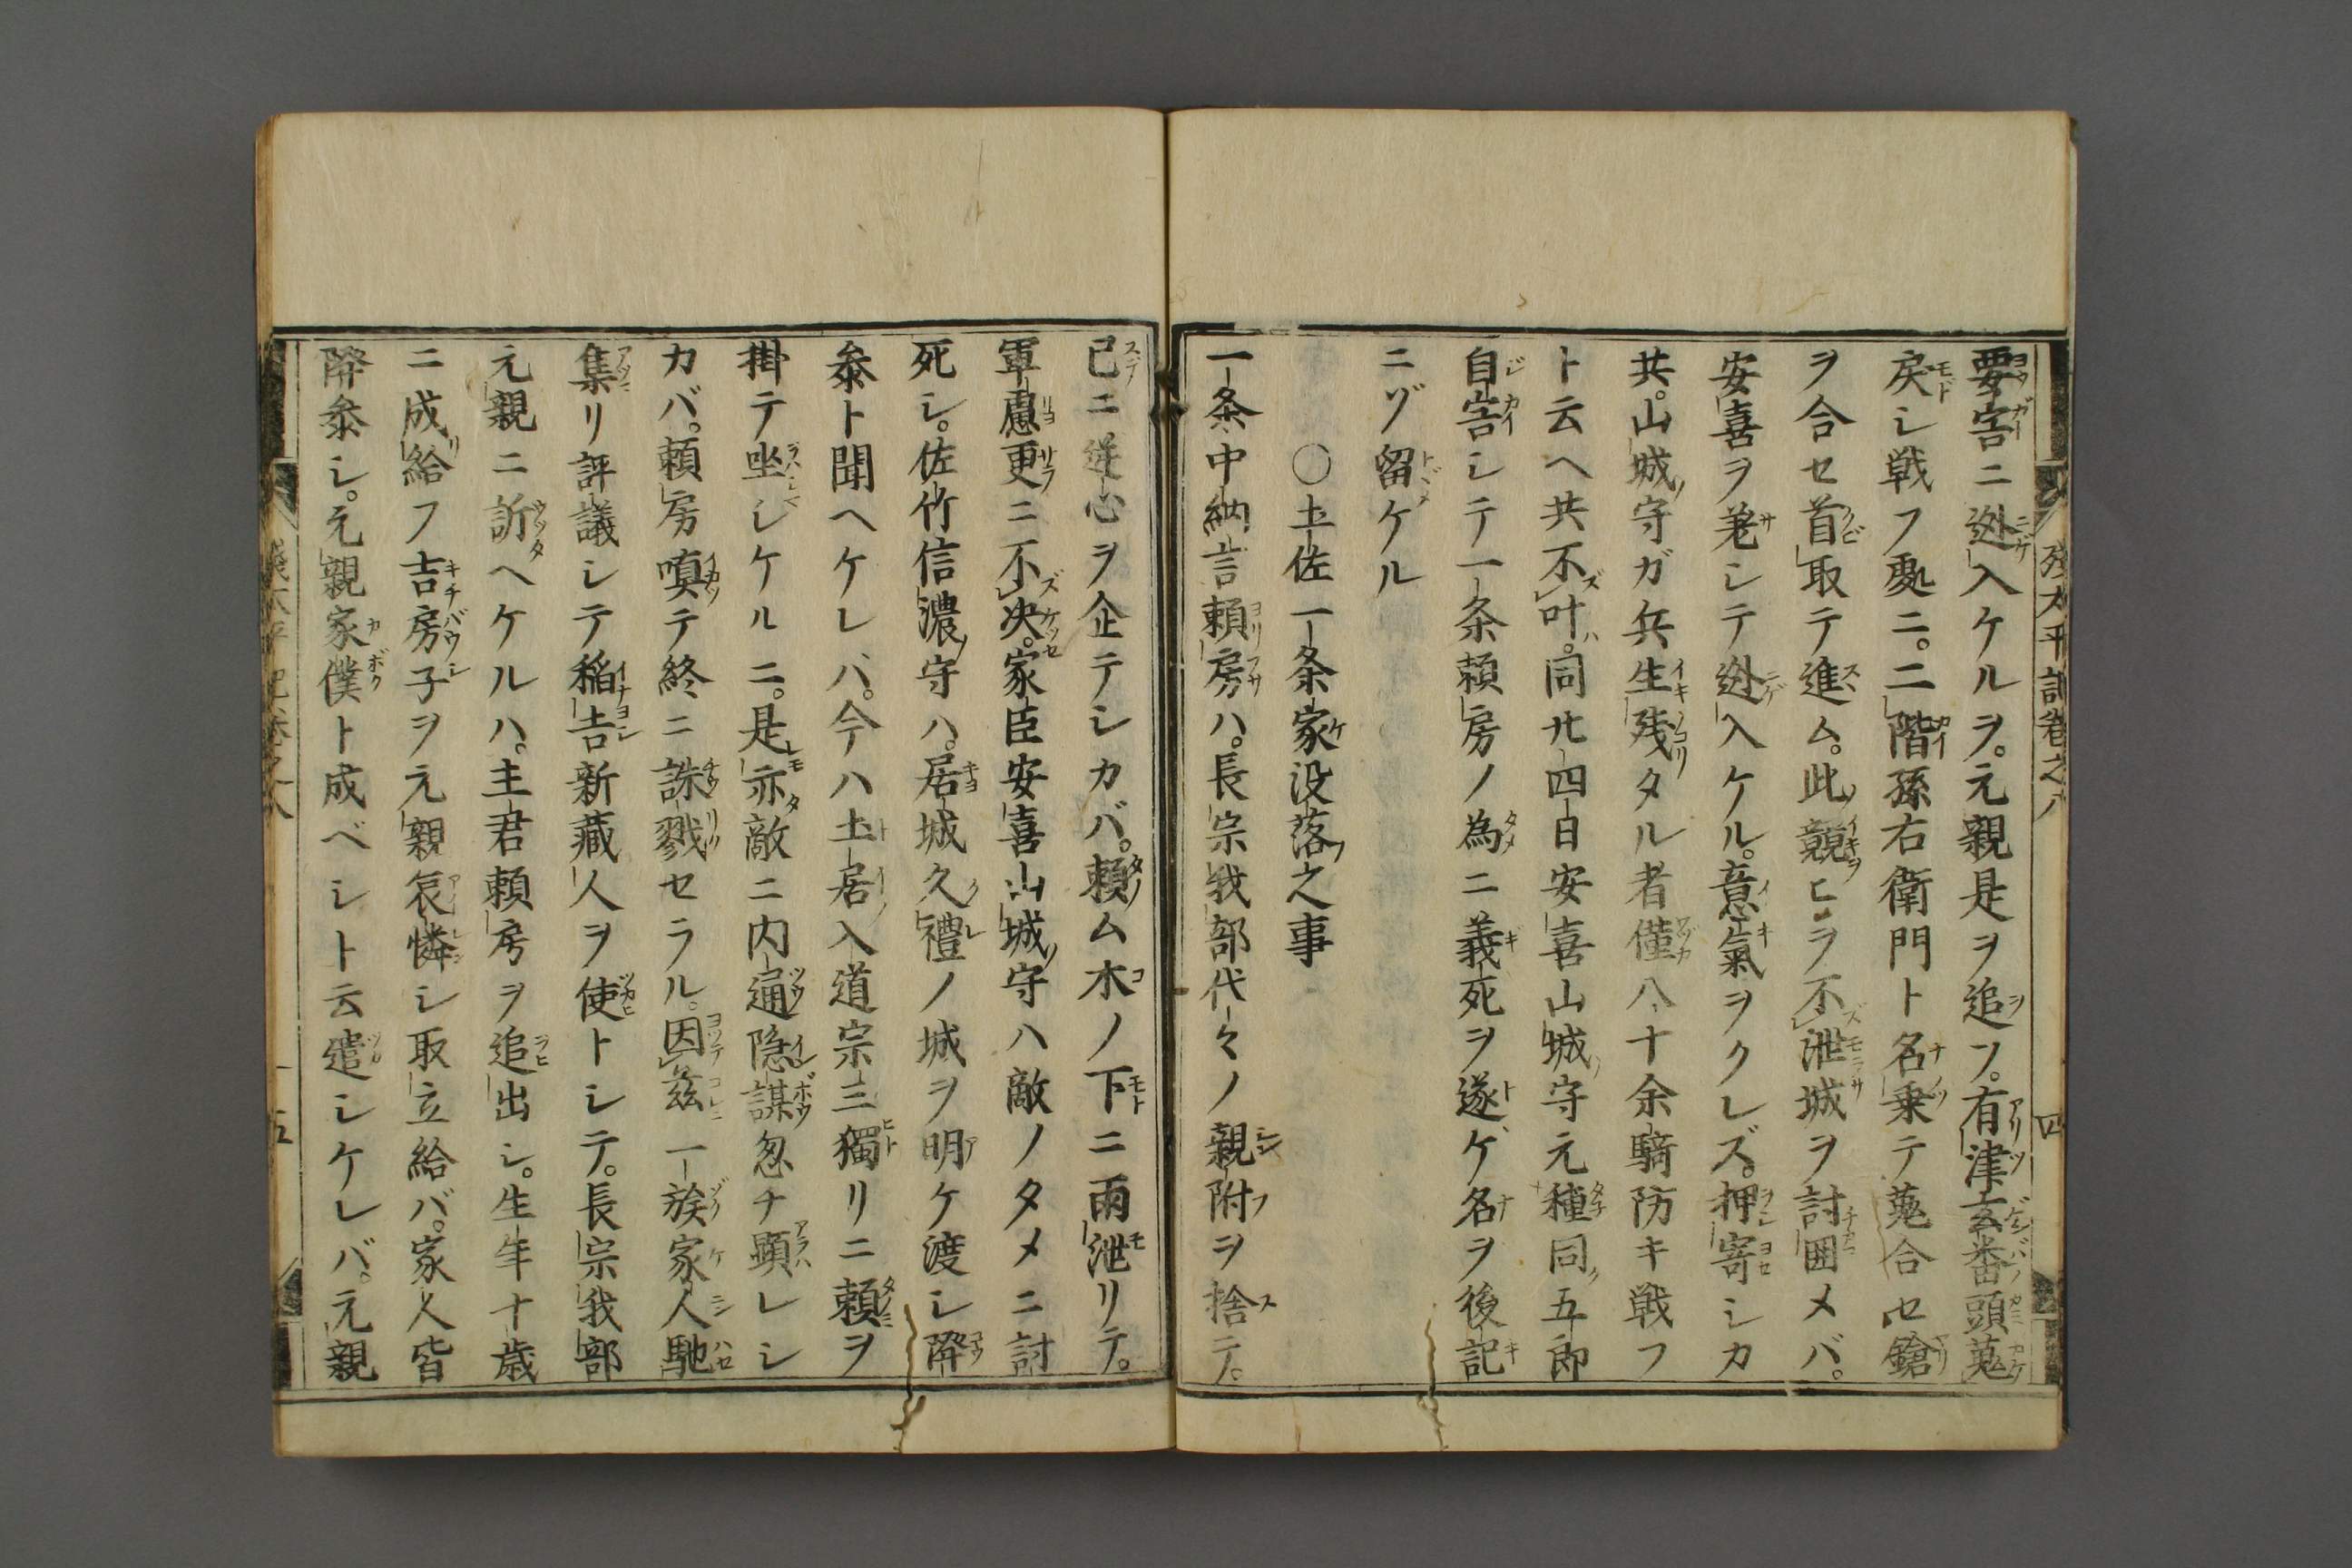 残太平記巻之八
四
要害ニ迯入ケルヲ。元親是ヲ追フ。有津玄番頭蒐
戻シ戦フ處ニ。二階孫右衛門ト名乗テ蒐合セ鎗
ヲ合セ首取テ進ム。此競ヒヲ不泄城ヲ討囲メバ。
安喜ヲ差シテ迯入ケル。意氣ヲクレズ。押寄シカ
共。山城守ガ兵生残タル者僅八十余騎防キ戦フ
ト云ヘ共不叶。同廿四日安喜山城守元種同五郎
自害シテ一条頼房ノ為ニ義死ヲ遂ゲ名ヲ後記
ニゾ留ケル
〇土佐一条家没落之事
一条中納言頼房ハ。長宗我部代々ノ親附ヲ捨テ。
已ニ逆心ヲ企テシカバ。頼ム木ノ下ニ雨泄リテ。
軍慮更ニ不决。家臣安喜山城守ハ敵ノタメニ討
死シ。佐竹信濃守ハ。居城久禮ノ城ヲ明ケ渡シ降
参ト聞ヘケレバ。今ハ土居入道宗三獨リニ頼ヲ
掛テ坐シケルニ。是亦敵ニ内通隠謀忽チ顕レシ
カバ。頼房嗔テ終ニ誅戮セラル。因茲一族家人馳
集リ評議シテ稲吉新蔵人ヲ使トシテ。長宗我部
元親ニ訴ヘケルハ。主君頼房ヲ追出シ。生年十歳
ニ成給フ吉房子ヲ元親哀憐シ取立給バ。家人皆
降参シ。元親家僕ト成ベシト云遣シケレバ。元親
五